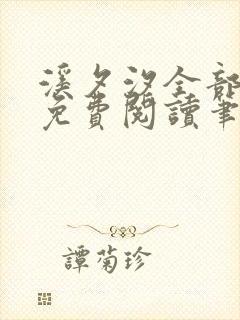 溪夕汐全部
免費閱讀筆
譚菊珍